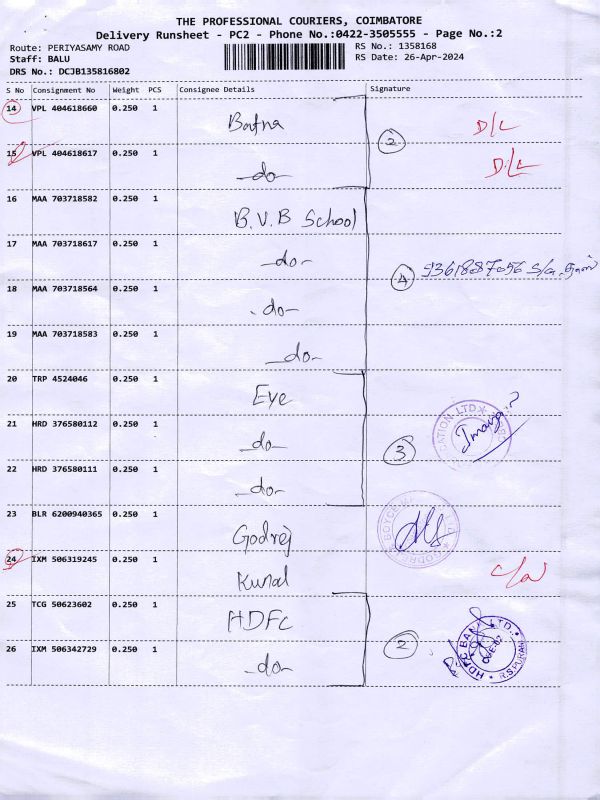 THE PROFESSIONAL COURIERS, COIMBATORE
Delivery Runsheet - PC2 - Phone No.:0422-3505555 - Page No.:2
Route: PERIYASAMY ROAD
RS No.: 1358168
Staff: BALU
RS Date: 26-Apr-2024
DRS No.: DCJB135816802
S No Consignment No Weight PCS Consignee Details Signature
14 VPL 404618660 0.250 1 D/L
15 VPL 404618617 0.250 1 -do- D/L
2
16 MAA 703718582 0.250 1 B.V.B School
17 MAA 703718617 0.250 1 -do-
4 9361887056
18 MAA 703718564 0.250 1 -do-
19 MAA 703718583 0.250 1 -do-
20 TRP 4524046 0.250 1 Eye
21 HRD 376580112 0.250 1 -do-
3
22 HRD 376580111 0.250 1 -do-
23 BLR 6200940365 0.250 1 Godrej
24 IXM 506319245 0.250 1 Kunal
25 TCG 50623602 0.250 1 HDFC
26 IXM 506342729 0.250 1 -do- 2 HDFC BANK LTD. R.S.PURAM